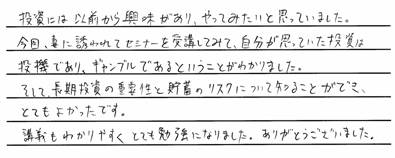 投資には以前から興味があり、やってみたいと思っていました。
今回、妻に誘われてセミナーを受講してみて、自分が思っていた投資は
投機であり、ギャンブルであるということがわかりました。
そして、長期投資の重要性と貯蓄のリスクについて知ることができ、
とてもよかったです。
講義もわかりやすくとても勉強になりました。ありがとうございました。